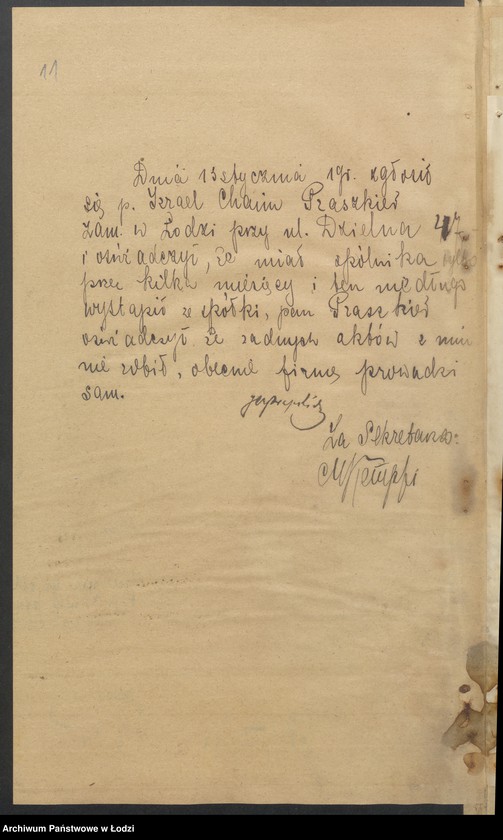 11
Dnia 13 stycznia 19r. zgłosił
się p. Izrael Chaim Praszkier
zam. w Łodzi przy ul. Dzielna 47
i oświadczył, że miał spólnika tylko
prze kilka miesięcy i ten niedługo
wystąpił ze spółki, pan Praszkier
oświadczył że żadnych aktów z nim
nie robił, obecnie firmę prowadzi
sam.
Za Sekretarza:
Archiwum Państwowe w Łodzi